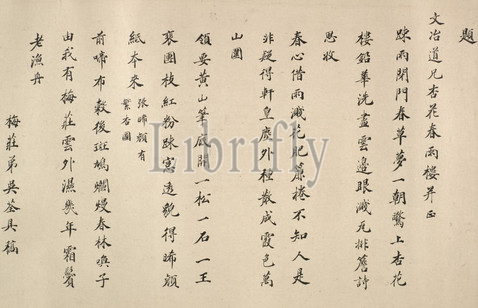 題
文冶道兄杏花春雨樓并正
踈雨閉門春草夢一朝驚上杏花
樓鉛華洗盡雲邊眼減无排簷詩
思收
春心借雨減花肥簾捲不知人是
非疑得軒皇度外種散成霞色萬
山圍
領要黃山筆底開一松一石一王
裒團枝紅粉踈窓透貌得晞顔
紙本來 張晞顔有
繁杏圖
前啼布穀後斑鳩爛熳春林喚子
由我有梅莊雲外濕幾年霜鬢
老漁舟
梅莊弟吳荃具稿
Librifly